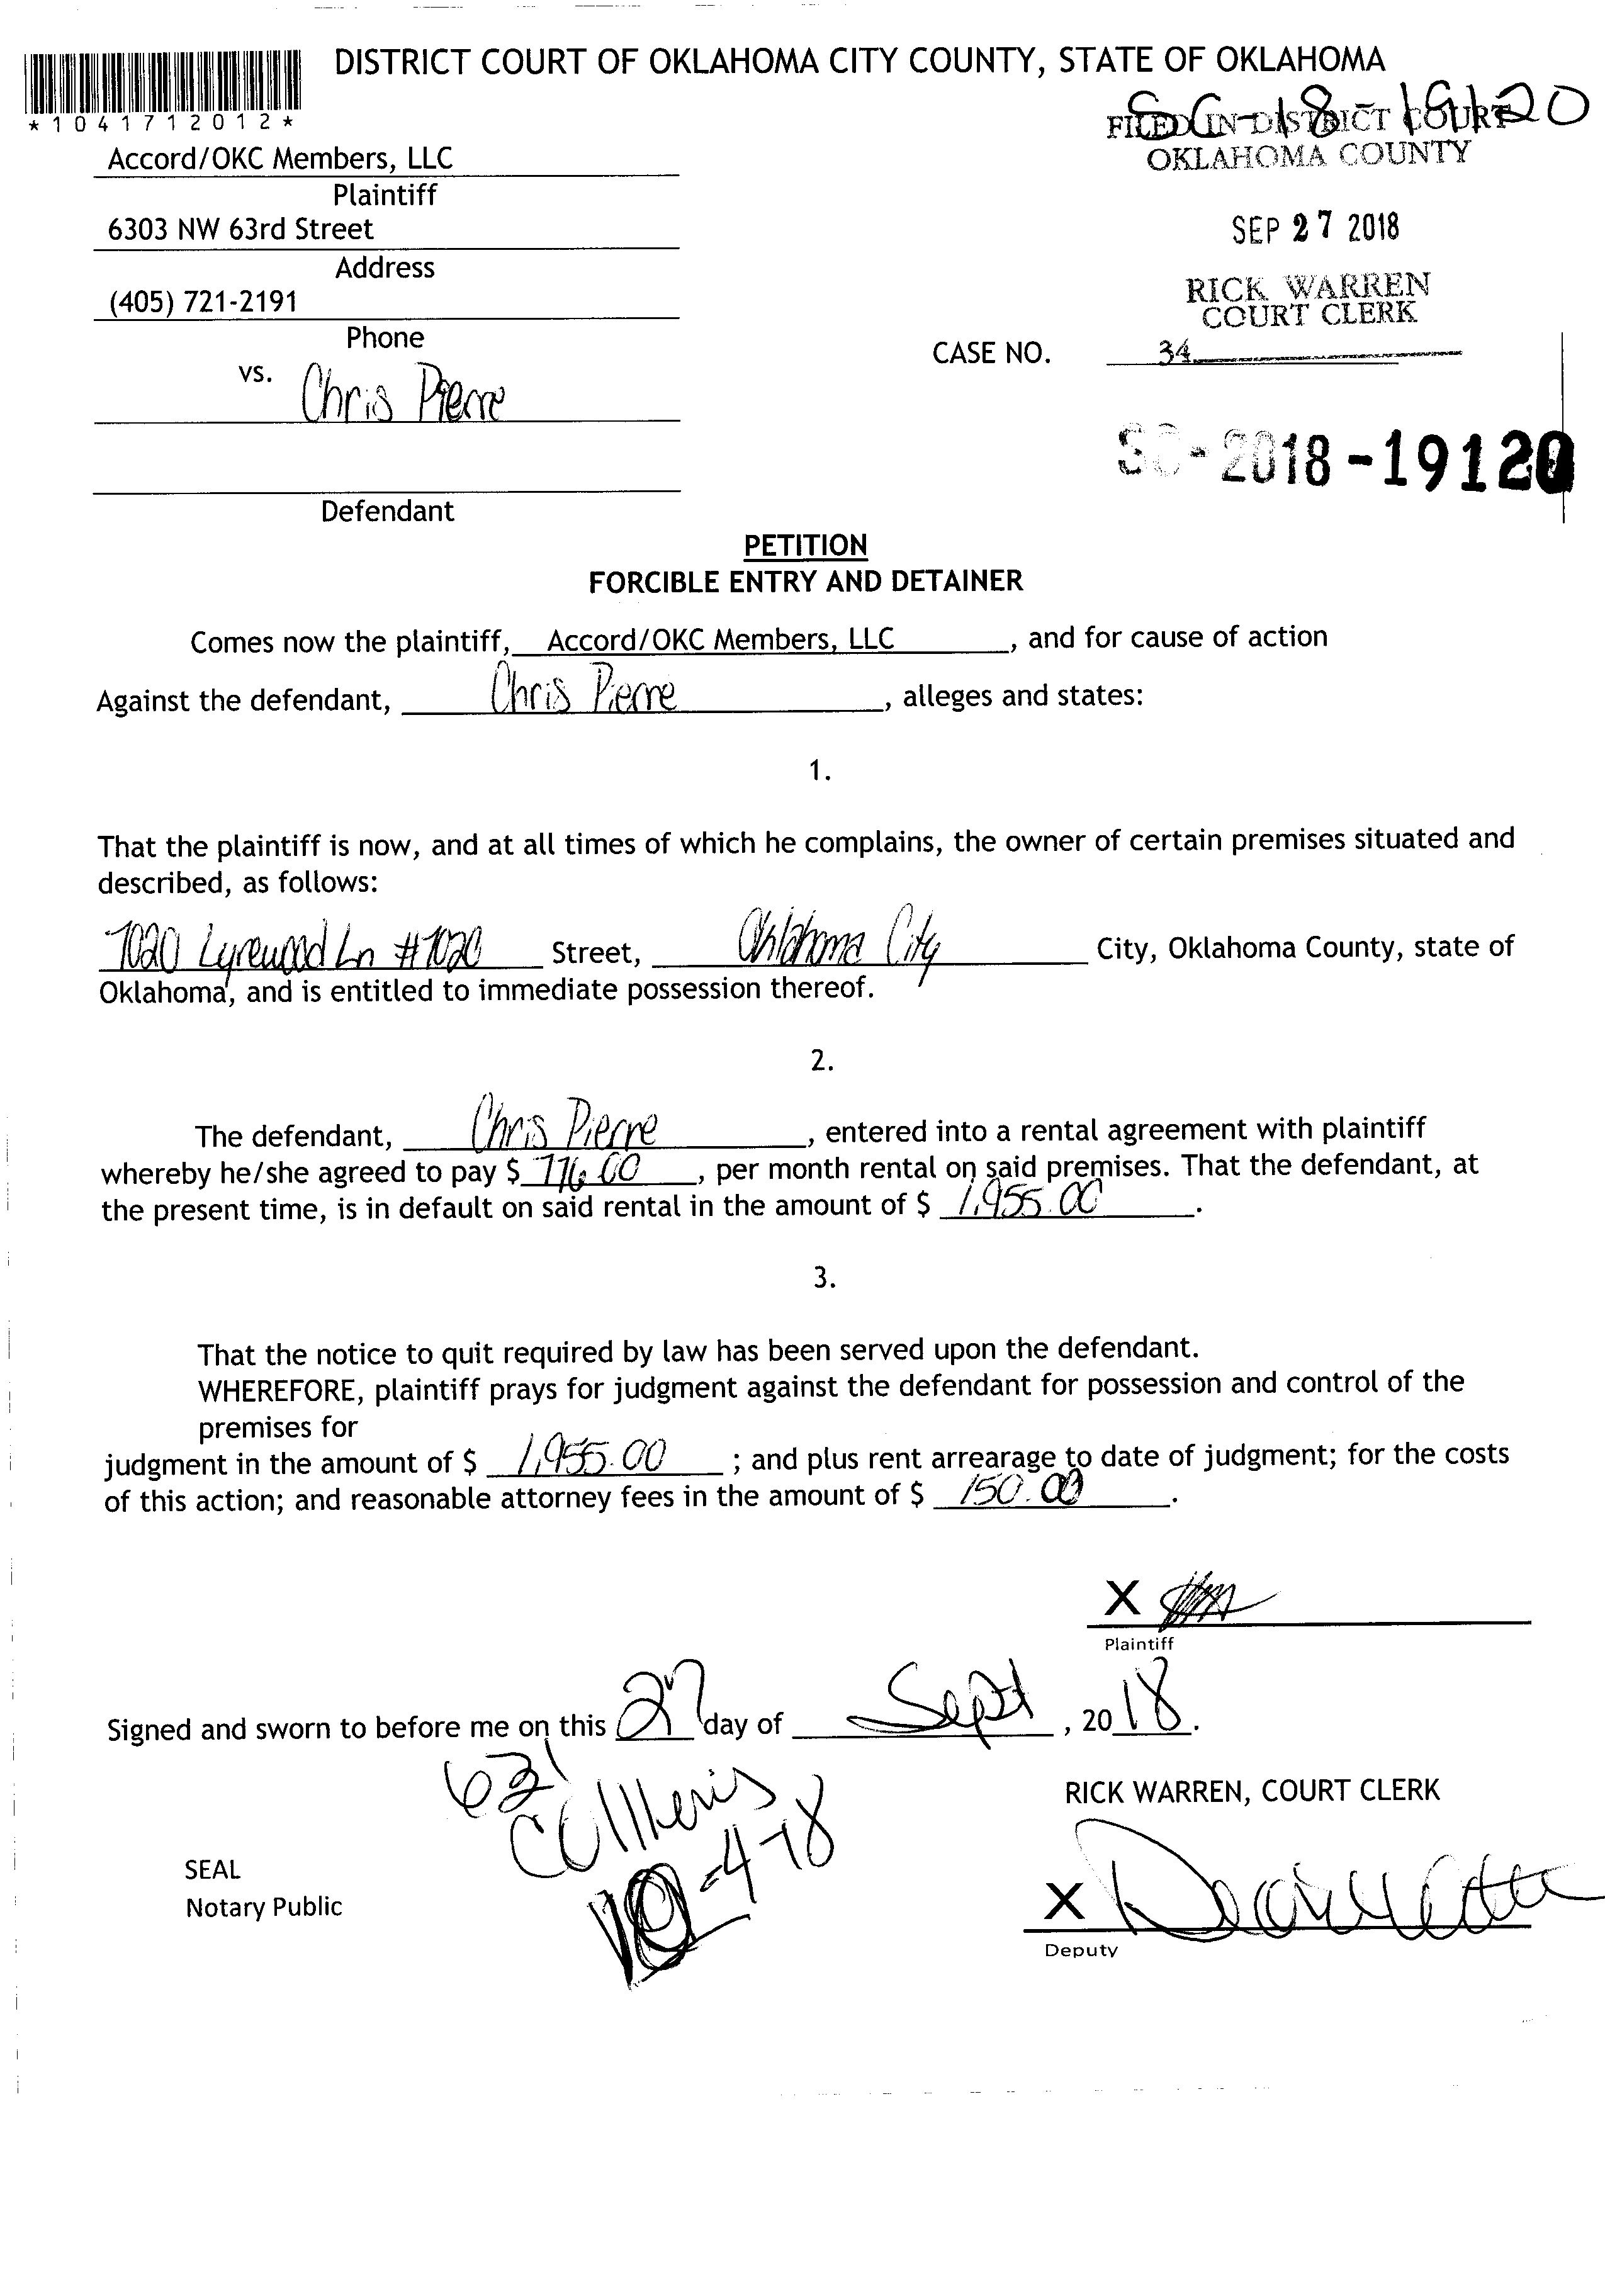 DISTRICT COURT OF OKLAHOMA CITY COUNTY, STATE OF OKLAHOMA
*1041712012*
SC-18-19120
FILED IN DISTRICT COURT
OKLAHOMA COUNTY
Accord/OKC Members, LLC
Plaintiff
6303 NW 63rd Street
SEP 27 2018
Address
(405) 721-2191
RICK WARREN
COURT CLERK
Phone
CASE NO. 34
vs. Chris Pierre
SC-2018-19120
Defendant
PETITION
FORCIBLE ENTRY AND DETAINER
Comes now the plaintiff, Accord/OKC Members, LLC, and for cause of action
Against the defendant, Chris Pierre, alleges and states:
1.
That the plaintiff is now, and at all times of which he complains, the owner of certain premises situated and
described, as follows:
7020 Lyrewood Ln #1020 Street, Oklahoma City City, Oklahoma County, state of
Oklahoma, and is entitled to immediate possession thereof.
2.
The defendant, Chris Pierre, entered into a rental agreement with plaintiff
whereby he/she agreed to pay $ 776.00, per month rental on said premises. That the defendant, at
the present time, is in default on said rental in the amount of $ 1,955.00.
3.
That the notice to quit required by law has been served upon the defendant.
WHEREFORE, plaintiff prays for judgment against the defendant for possession and control of the
premises for
judgment in the amount of $ 1,955.00; and plus rent arrearage to date of judgment; for the costs
of this action; and reasonable attorney fees in the amount of $ 150.00.
X
Plaintiff
Signed and sworn to before me on this 27 day of Sept, 2018.
621
RICK WARREN, COURT CLERK
10-4-18
SEAL
Notary Public
X
Deputy